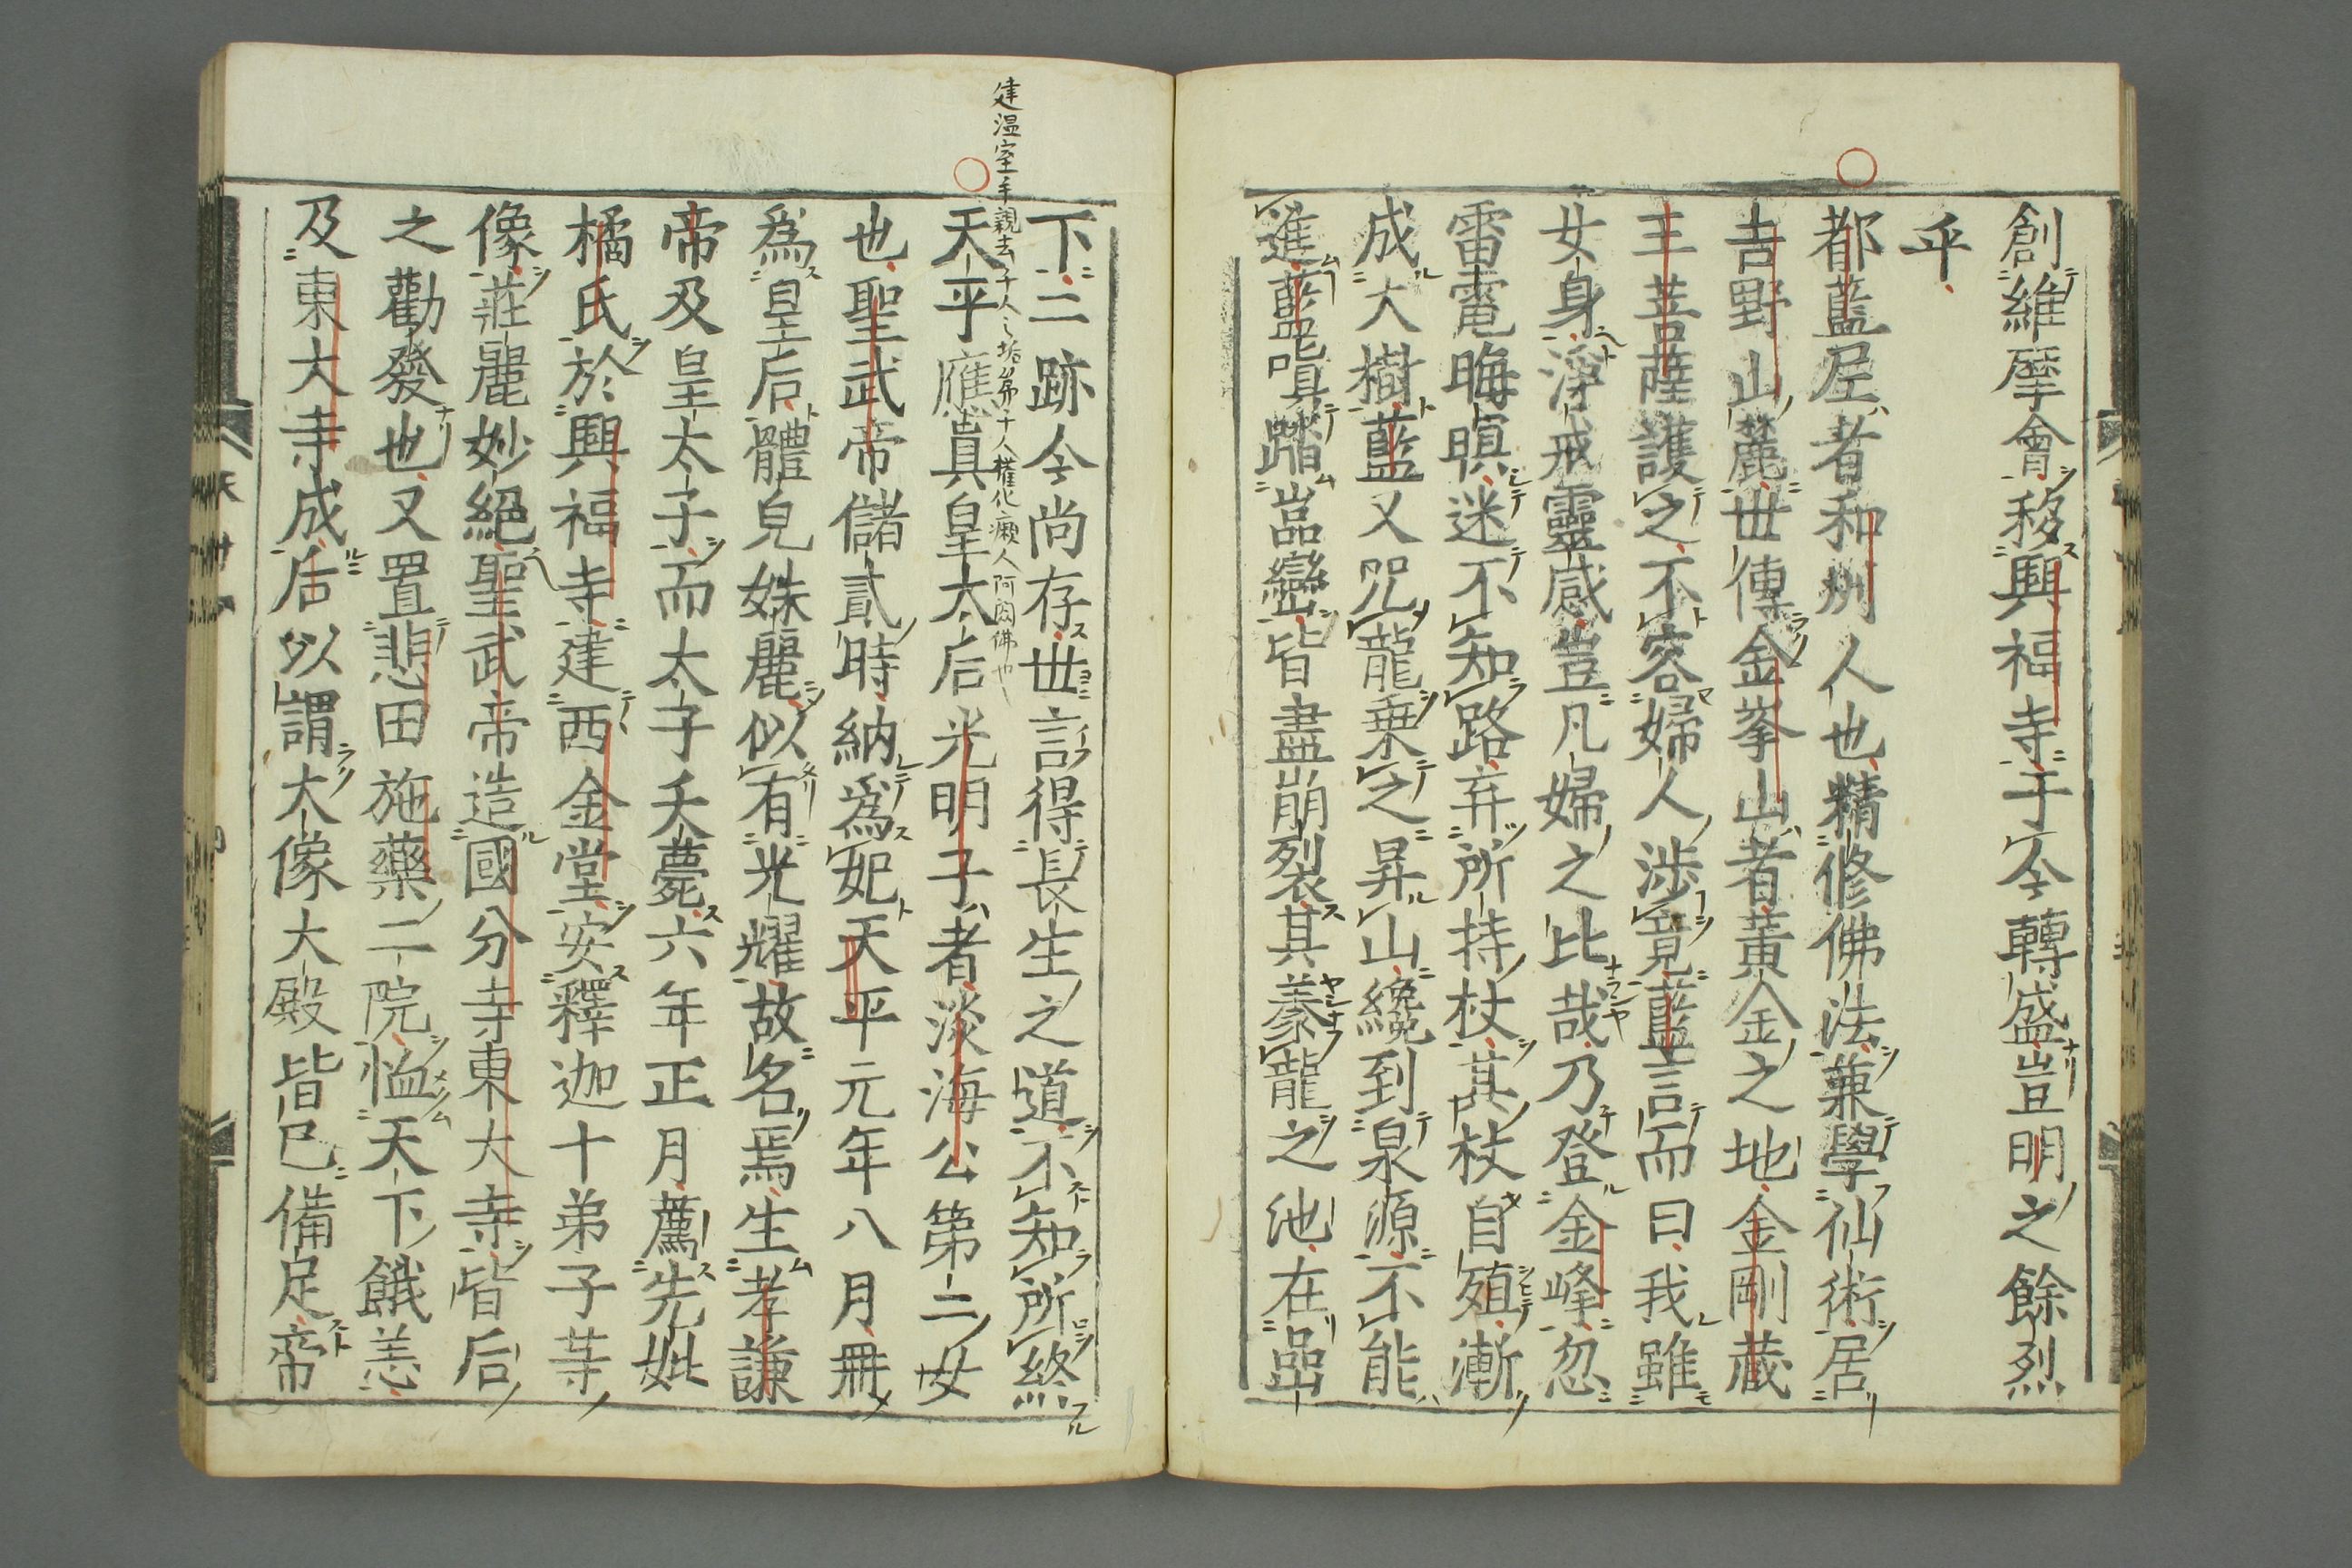 創維摩會移興福寺于今轉盛豈明之餘烈
乎
都藍尼者和州人也精修佛法兼學仙術居
吉野山麓世傳金峯山者黃金之地金剛藏
王菩薩護之不容婦人渉竟藍言而曰我雖
女身淨戒靈感豈凡婦之比哉乃登金峰忽
雷電晦暝迷不知路弃所持杖其杖自殖漸
成大樹藍又咒龍乗之昇山纔到泉源不能
進藍嗔踏嵓巒皆盡崩裂其養龍之池在嵒
下二跡今尚存世言得長生之道不知所終
天平應真皇太后光明子者淡海公第二女
也聖武帝儲貳時納爲妃天平元年八月冊
爲皇后體皃姝麗似有光耀故名焉生孝謙
帝及皇太子而太子夭薨六年正月薦先妣
橘氏於興福寺建西金堂安釋迦十弟子等
像莊麗妙絕聖武帝造國分寺東大寺皆后
之勸發也又置悲田施藥二院恤天下餓恙
及東大寺成后以謂大像大殿皆已備足帝
建温室手親去千人之垢第千人權化癩人阿閦佛也